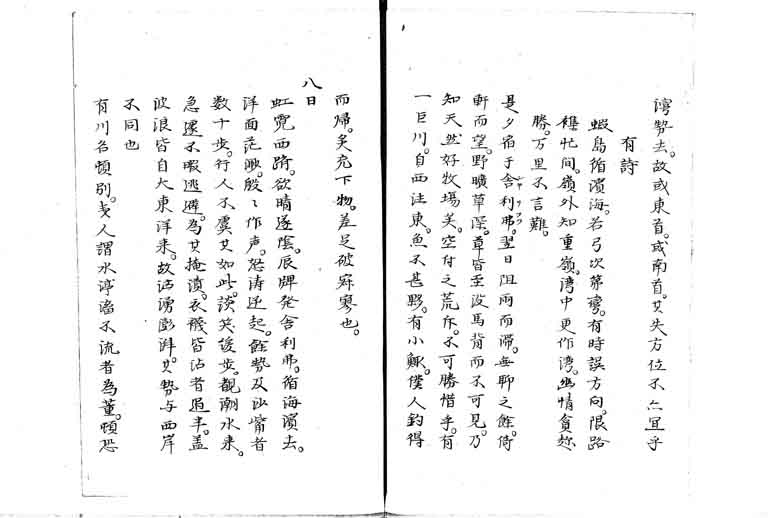 湾勢去。故或東首。或南首。其失方位不亦宜乎
有詩
蝦島循濱海。若弓次第彎。有時誤方向。限路
種忙間。嶺外知重嶺。湾中更作湾。幽情貪
勝。万里不言難。
是夕宿于舎利弗。翌日阻雨而滞。無聊之餘。倚
軒而望。野曠草深。草皆至没馬背而不可見。乃
知天然好牧場矣。空付之荒斥。不可勝惜乎。有
一巨川。自西注東。魚不甚夥。有小鰍。僕人釣得
而帰。炙充下物。差足破寂寥也。
八日
虹霓西隮。欲晴遂陰。辰牌発舎利弗。循海濱去。
洋面茫渺。殷々作声。怒涛逆起。餘勢及沙嘴者
数十歩。行人不虞其如此。談笑緩歩。観潮水来。
急遽不暇逃避。為其掩濆。衣襪皆沾者過半。盖
波浪皆自大東洋来。故汹湧澎湃。其勢与西岸
不同也
有川名頓別。夷人謂水渟滀不流者為董。頓恐